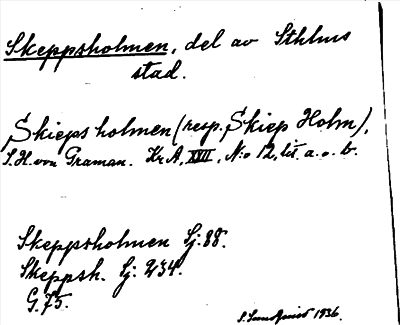 Skeppsholmen, del av Sthlms
stad.
Skieps holmen (resp. Skiep Holm),
S. H. von Graman. Kr A, XVII, N:o 12, lit. a. o. b.
Skeppsholmen Lj: 88.
Skeppsh. Lj: 234.
G. 75.
S. Sundquist 1936.